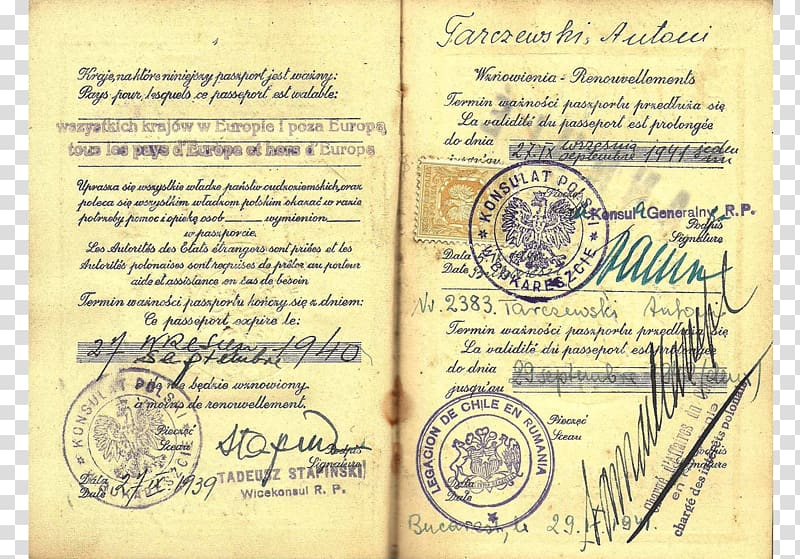 4
Kraje, na które niniejszy paszport jest ważny:
Pays pour lesquels ce passeport est valable:
wszystkich krajów w Europie i poza Europą
tous les pays d'Europe et hors d'Europe
Uprasza się wszystkie władze państw cudzoziemskich, oraz
poleca się wszystkim władzom polskim okazać w razie
potrzeby pomoc i opiekę osob____ wymienion____
w paszporcie.
Les Autorités des Etats étrangers sont priées et les
Autorités polonaises sont requises de prêter au porteur
aide et assistance en cas de besoin
Termin ważności paszportu kończy się z dniem:
Ce passeport expire le:
27 Wrzesień 1940
Septembre
nie będzie wznowiony
à moins de renouvellement.
KONSULAT POLS
Pieczęć
Sceau
Podpis
Signature
Data
Date 27 IX 1939
TADEUSZ STAPIŃSKI
Wicekonsul R. P.
Tarczewski, Antoni
Wznowienia - Renouvellements
Termin ważności paszportu przedłuża się
La validité du passeport est prolongée
do dnia 27.IX września 1941
septembre
KONSULAT POLSKI
W BUKARESZCIE
Konsul Generalny R. P.
Podpis
Signature
Data
Date
Nr. 2383. Tarczewski Antoni
Termin ważności paszportu przedłuża się
La validité du passeport est prolongée
do dnia
jusqu'au septembre
LEGACION DE CHILE EN RUMANIA
Pieczęć
Sceau
Podpis
Signature
Data
Date
Chargé d'affaires
chargé des intérêts polonais
Bucarest, le 29